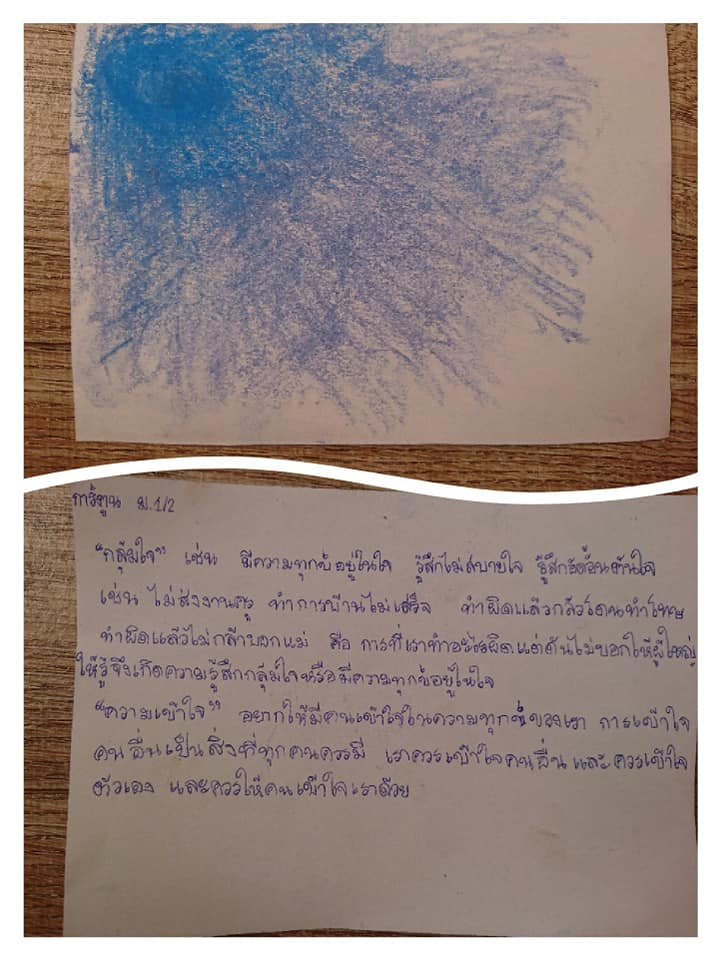 การ์ตูน ม.1/2
"กลุ้มใจ" เช่น มีความทุกข์อยู่ในใจ รู้สึกไม่สบายใจ รู้สึกอัดอั้นตันใจ
เช่น ไม่ส่งงานครู ทำการบ้านไม่เสร็จ ทำผิดแล้วกลัวโดนทำโทษ
ทำผิดแล้วไม่กล้าบอกแม่ คือ การที่เราทำอะไรผิดแต่ดันไม่บอกให้ผู้ใหญ่
ให้รู้จึงเกิดความรู้สึกกลุ้มใจหรือมีความทุกข์อยู่ในใจ
"ความเข้าใจ" อยากให้มีคนเข้าใจในความทุกข์ของเรา การเข้าใจ
คนอื่นเป็นสิ่งที่ทุกคนควรมี เราควรเข้าใจคนอื่นและควรเข้าใจ
ตัวเอง และควรให้คนเข้าใจเราด้วย